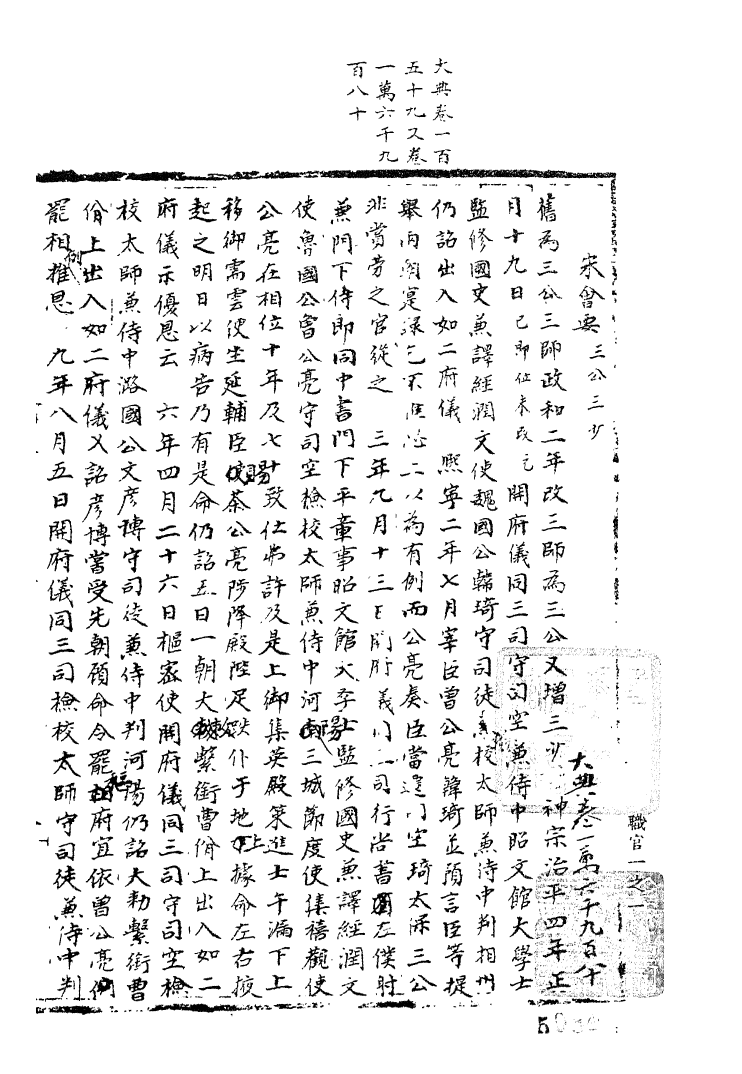 大典卷一百
五十九又卷
一萬六千九
百八十
宋會要 三公三少
大典卷一萬六千九百八十
職官一之一
舊為三公三師政和二年改三師為三公又增三少 神宗治平四年正
月十九日已即位未改元開府儀同三司守司空兼侍中昭文館大學士
監修國史兼譯經潤文使魏國公韓琦守司徒檢校太師兼侍中判相州
仍詔出入如二府儀 熙寧二年七月宰臣曾公亮韓琦並預言臣等提
舉兩朝實錄 以為有例而公亮奏臣當 司空琦太保三公
非賞勞之官從之 三年九月十三日開府儀同三司行尚書左僕射
兼門下侍郎同中書門下平章事昭文館大學士監修國史兼譯經潤文
使魯國公曾公亮守司空檢校太師兼侍中河陽三城節度使集禧觀使
公亮在相位十年及七十致仕弗許及是上御集英殿策進士午漏下上
移御需雲便坐延輔臣賜茶公亮陟降殿陛足跌仆于地上據命左右掖
起之明日以病告乃有是命仍詔五日一朝大敕繫銜曹佾上出入如二
府儀示優恩云 六年四月二十六日樞密使開府儀同三司守司空檢
校太師兼侍中潞國公文彥博守司徒兼侍中判河陽仍詔大勅繫銜曹
佾上出入如二府儀又詔彥博嘗受先朝顧命今罷樞府宜依曾公亮例
罷相例推恩 九年八月五日開府儀同三司檢校太師守司徒兼侍中判